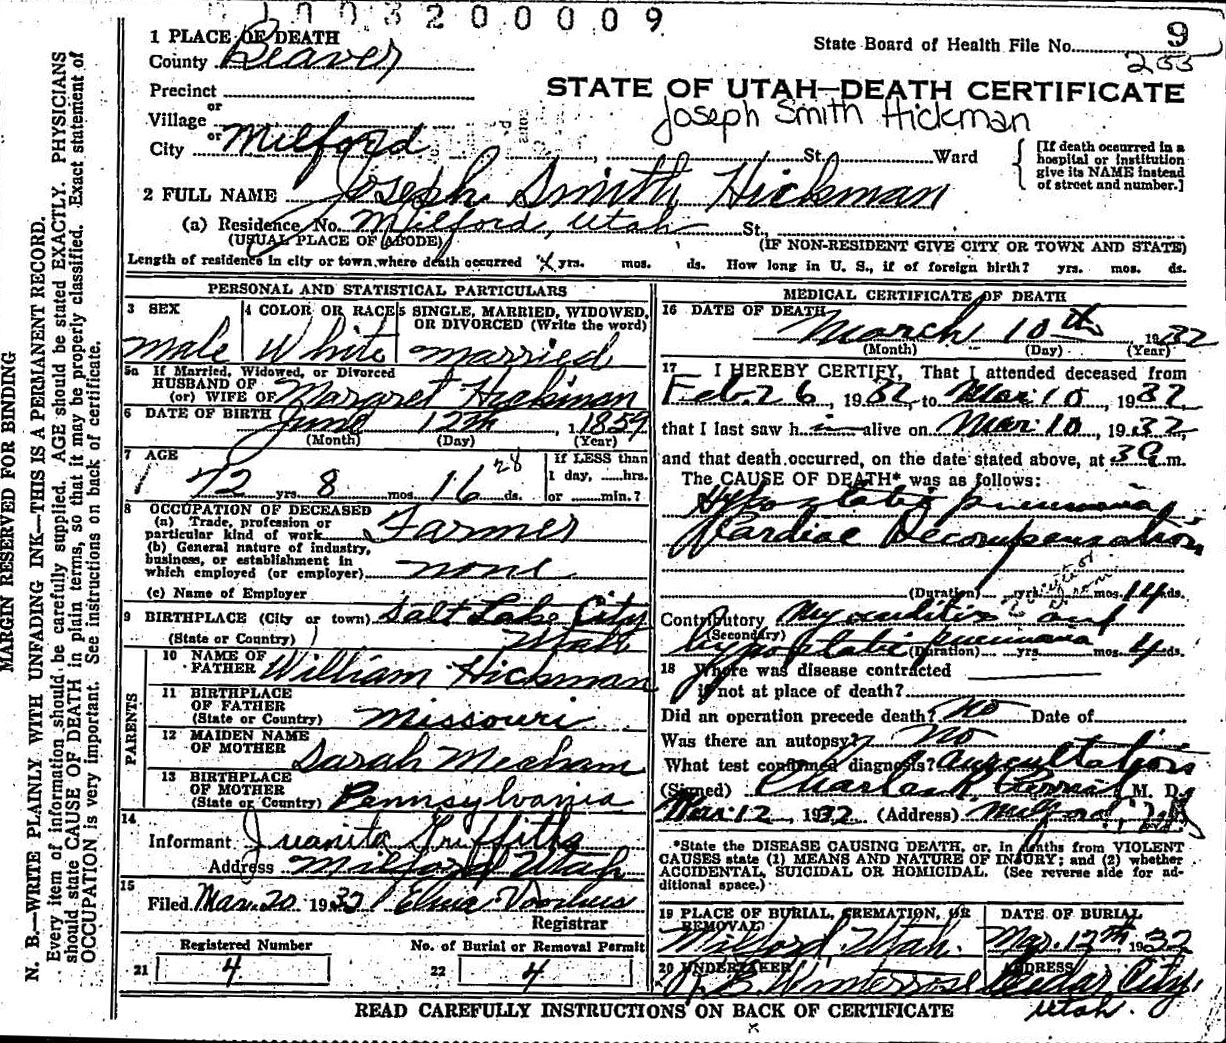 1003200009
1 PLACE OF DEATH
County Beaver
State Board of Health File No. 9
255
STATE OF UTAH—DEATH CERTIFICATE
Joseph Smith Hickman
Precinct
or
Village
or
City Milford St. Ward
[If death occurred in a hospital or institution give its NAME instead of street and number.]
2 FULL NAME Joseph Smith Hickman
(a) Residence No. Milford, Utah St.,
(USUAL PLACE OF ABODE) (IF NON-RESIDENT GIVE CITY OR TOWN AND STATE)
Length of residence in city or town where death occurred yrs. mos. ds. How long in U. S., if of foreign birth? yrs. mos. ds.
PERSONAL AND STATISTICAL PARTICULARS
3 SEX Male
4 COLOR OR RACE White
5 SINGLE, MARRIED, WIDOWED, OR DIVORCED (Write the word) married
5a If Married, Widowed, or Divorced
HUSBAND OF
(or) WIFE OF Margaret Hickman
6 DATE OF BIRTH June 12th, 1859
(Month) (Day) (Year)
7 AGE 72 yrs. 8 mos. 16 28 ds.
If LESS than
1 day, hrs.
or min.?
8 OCCUPATION OF DECEASED
(a) Trade, profession or
particular kind of work Farmer
(b) General nature of industry,
business, or establishment in
which employed (or employer) none
(c) Name of Employer
9 BIRTHPLACE (City or town) Salt Lake City
(State or Country) Utah
PARENTS
10 NAME OF
FATHER William Hickman
11 BIRTHPLACE
OF FATHER
(State or Country) Missouri
12 MAIDEN NAME
OF MOTHER Sarah Mecham
13 BIRTHPLACE
OF MOTHER
(State or Country) Pennsylvania
14
Informant Juanita Griffiths
Address Milford Utah
15
Filed Mar. 20 1932
Registrar
Registered Number
21 4
No. of Burial or Removal Permit
22 4
MEDICAL CERTIFICATE OF DEATH
16 DATE OF DEATH
March 10th 1932
(Month) (Day) (Year)
17 I HEREBY CERTIFY, That I attended deceased from
Feb. 26, 1932, to Mar. 10, 1932
that I last saw h im alive on Mar. 10, 1932,
and that death occurred, on the date stated above, at 3 a.m.
The CAUSE OF DEATH* was as follows:
Hypostatic pneumonia
Cardiac Decompensation
(Duration) yrs. mos. 14 ds.
Contributory Myocarditis and
(Secondary) hypostatic pneumonia (Duration) yrs. mos. 4 ds.
18 Where was disease contracted
if not at place of death?
Did an operation precede death? No Date of
Was there an autopsy? No
What test confirmed diagnosis? Auscultation
(Signed) M. D.
Mar. 12, 1932 (Address) Milford,
*State the DISEASE CAUSING DEATH, or, in deaths from VIOLENT
CAUSES state (1) MEANS AND NATURE OF INJURY; and (2) whether
ACCIDENTAL, SUICIDAL OR HOMICIDAL. (See reverse side for ad-
ditional space.)
19 PLACE OF BURIAL, CREMATION, OR
REMOVAL
Milford, Utah.
DATE OF BURIAL
Mar. 12th 1932
20 UNDERTAKER
Winterrose
ADDRESS
Cedar City,
Utah.
READ CAREFULLY INSTRUCTIONS ON BACK OF CERTIFICATE
MARGIN RESERVED FOR BINDING
N. B.—WRITE PLAINLY WITH UNFADING INK—THIS IS A PERMANENT RECORD.
Every item of information should be carefully supplied. AGE should be stated EXACTLY. PHYSICIANS
should state CAUSE OF DEATH in plain terms, so that it may be properly classified. Exact statement of
OCCUPATION is very important. See instructions on back of certificate.